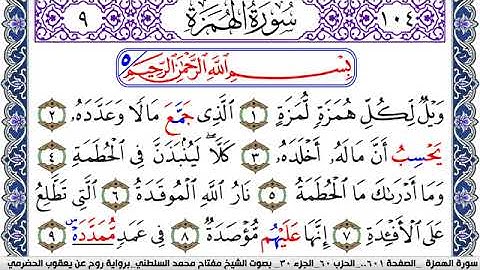 ١٠٤ سُورَةُ الْهُمَزَةِ ٩
بِسْمِ اللَّهِ الرَّحْمَٰنِ الرَّحِيمِ ٥
وَيْلٌ لِّكُلِّ هُمَزَةٍ لُّمَزَةٍ ١ الَّذِى جَمَّعَ مَالًا وَعَدَّدَهُۥ ٢
يَحْسِبُ أَنَّ مَالَهُۥ أَخْلَدَهُۥ ٣ كَلَّا ۖ لَيُنۢبَذَنَّ فِى الْحُطَمَةِ ٤
وَمَا أَدْرَىٰكَ مَا الْحُطَمَةُ ٥ نَارُ اللَّهِ الْمُوقَدَةُ ٦ الَّتِى تَطَّلِعُ
عَلَى الْأَفْـِٔدَةِ ٧ إِنَّهَا عَلَيْهُم مُّؤْصَدَةٌ ٨ فِى عَمَدٍ مُّمَدَّدَةٍۭ ٩
سورة الهمزة _الصفحة ٦٠١_ الحزب ٦٠_الجزء ٣٠_ بصوت الشيخ مفتاح محمد السلطني_برواية روح عن يعقوب الحضرمي